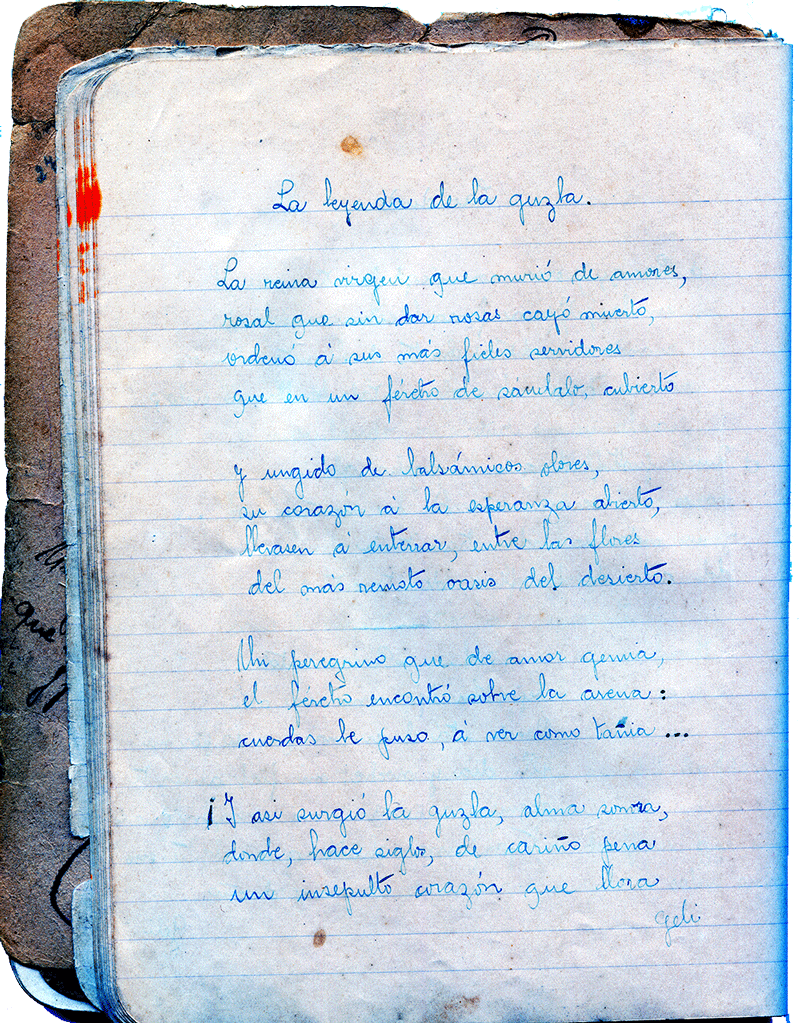 La leyenda de la guzla.
La reina virgen que murió de amores,
rosal que sin dar rosas cayó muerto,
ordenó á sus más fieles servidores
que en un féretro de sandalo, cubierto
y ungido de balsámicos olores,
su corazón á la esperanza abierto,
llevasen á enterrar, entre las flores
del más remoto oasis del desierto.
Un peregrino que de amor gemia,
el féretro encontró sobre la arena:
cuerdas le puso, á ver como tañia...
¡Y asi surgió la guzla, alma sonora,
donde, hace siglos, de cariño pena
un insepulto corazón que llora